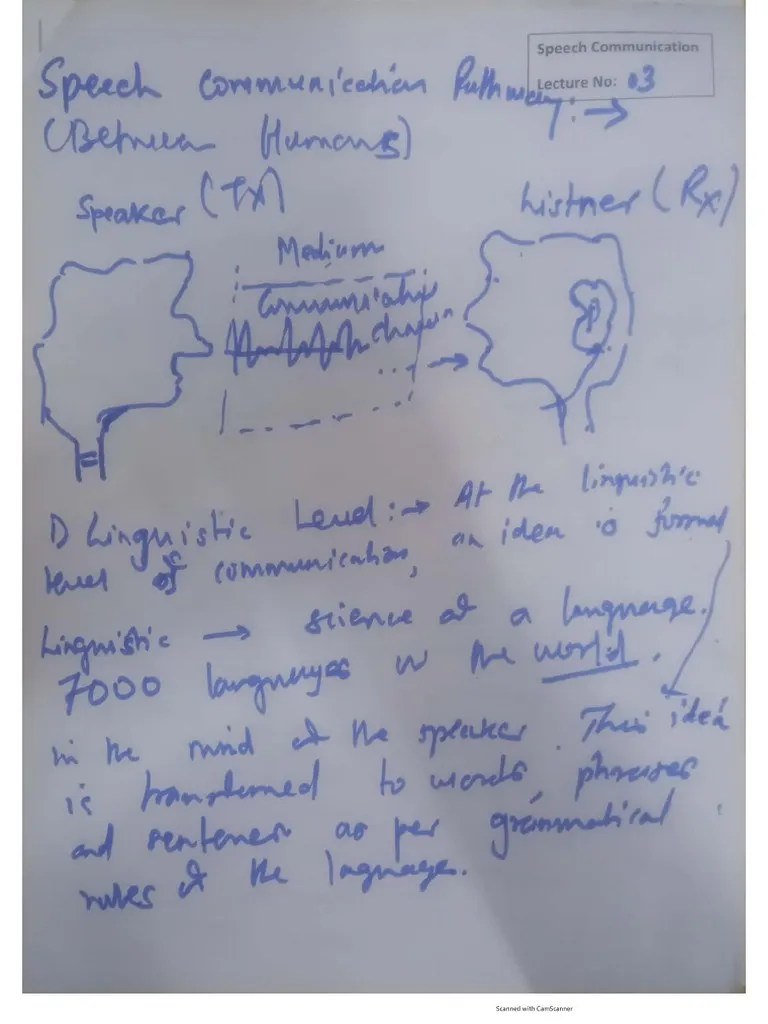 Speech Communication
Lecture No: 03
Speech Communication Pathway: →
(Between Humans)
Speaker (TX)
Listner (Rx)
Medium
Communication
1) Linguistic Level: → At the linguistic
level of communication, an idea is formed
Linguistic → science of a language.
7000 languages in the world.
in the mind of the speaker. This idea
is transformed to words, phrases
and sentences as per grammatical
rules of the laguage.
Scanned with CamScanner